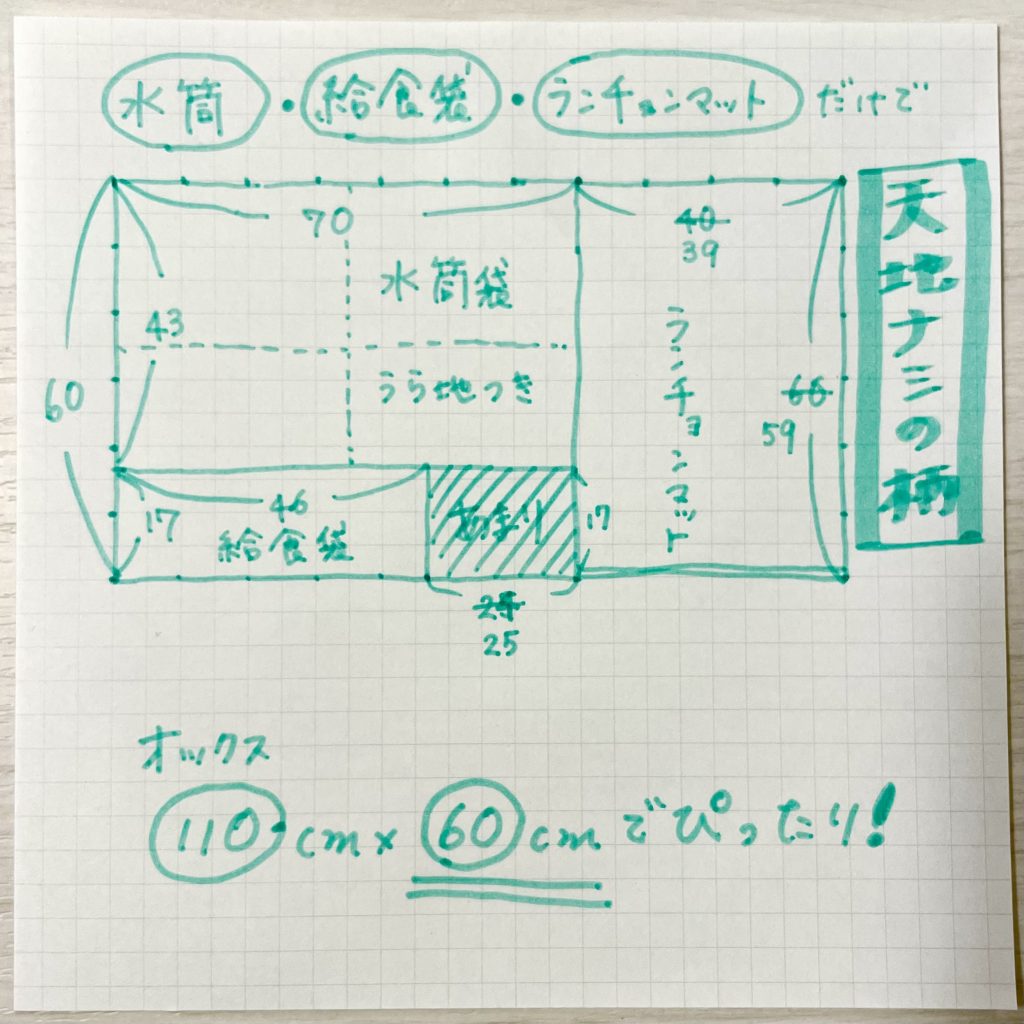 水筒・給食袋・ランチョンマットだけで
天地ナミの柄
70
40
39
水筒袋
43
うら地つき
60
ランチョンマット
66
59
46
17
給食袋
あまり
17
25
オックス
110cm×60cmでぴったり!